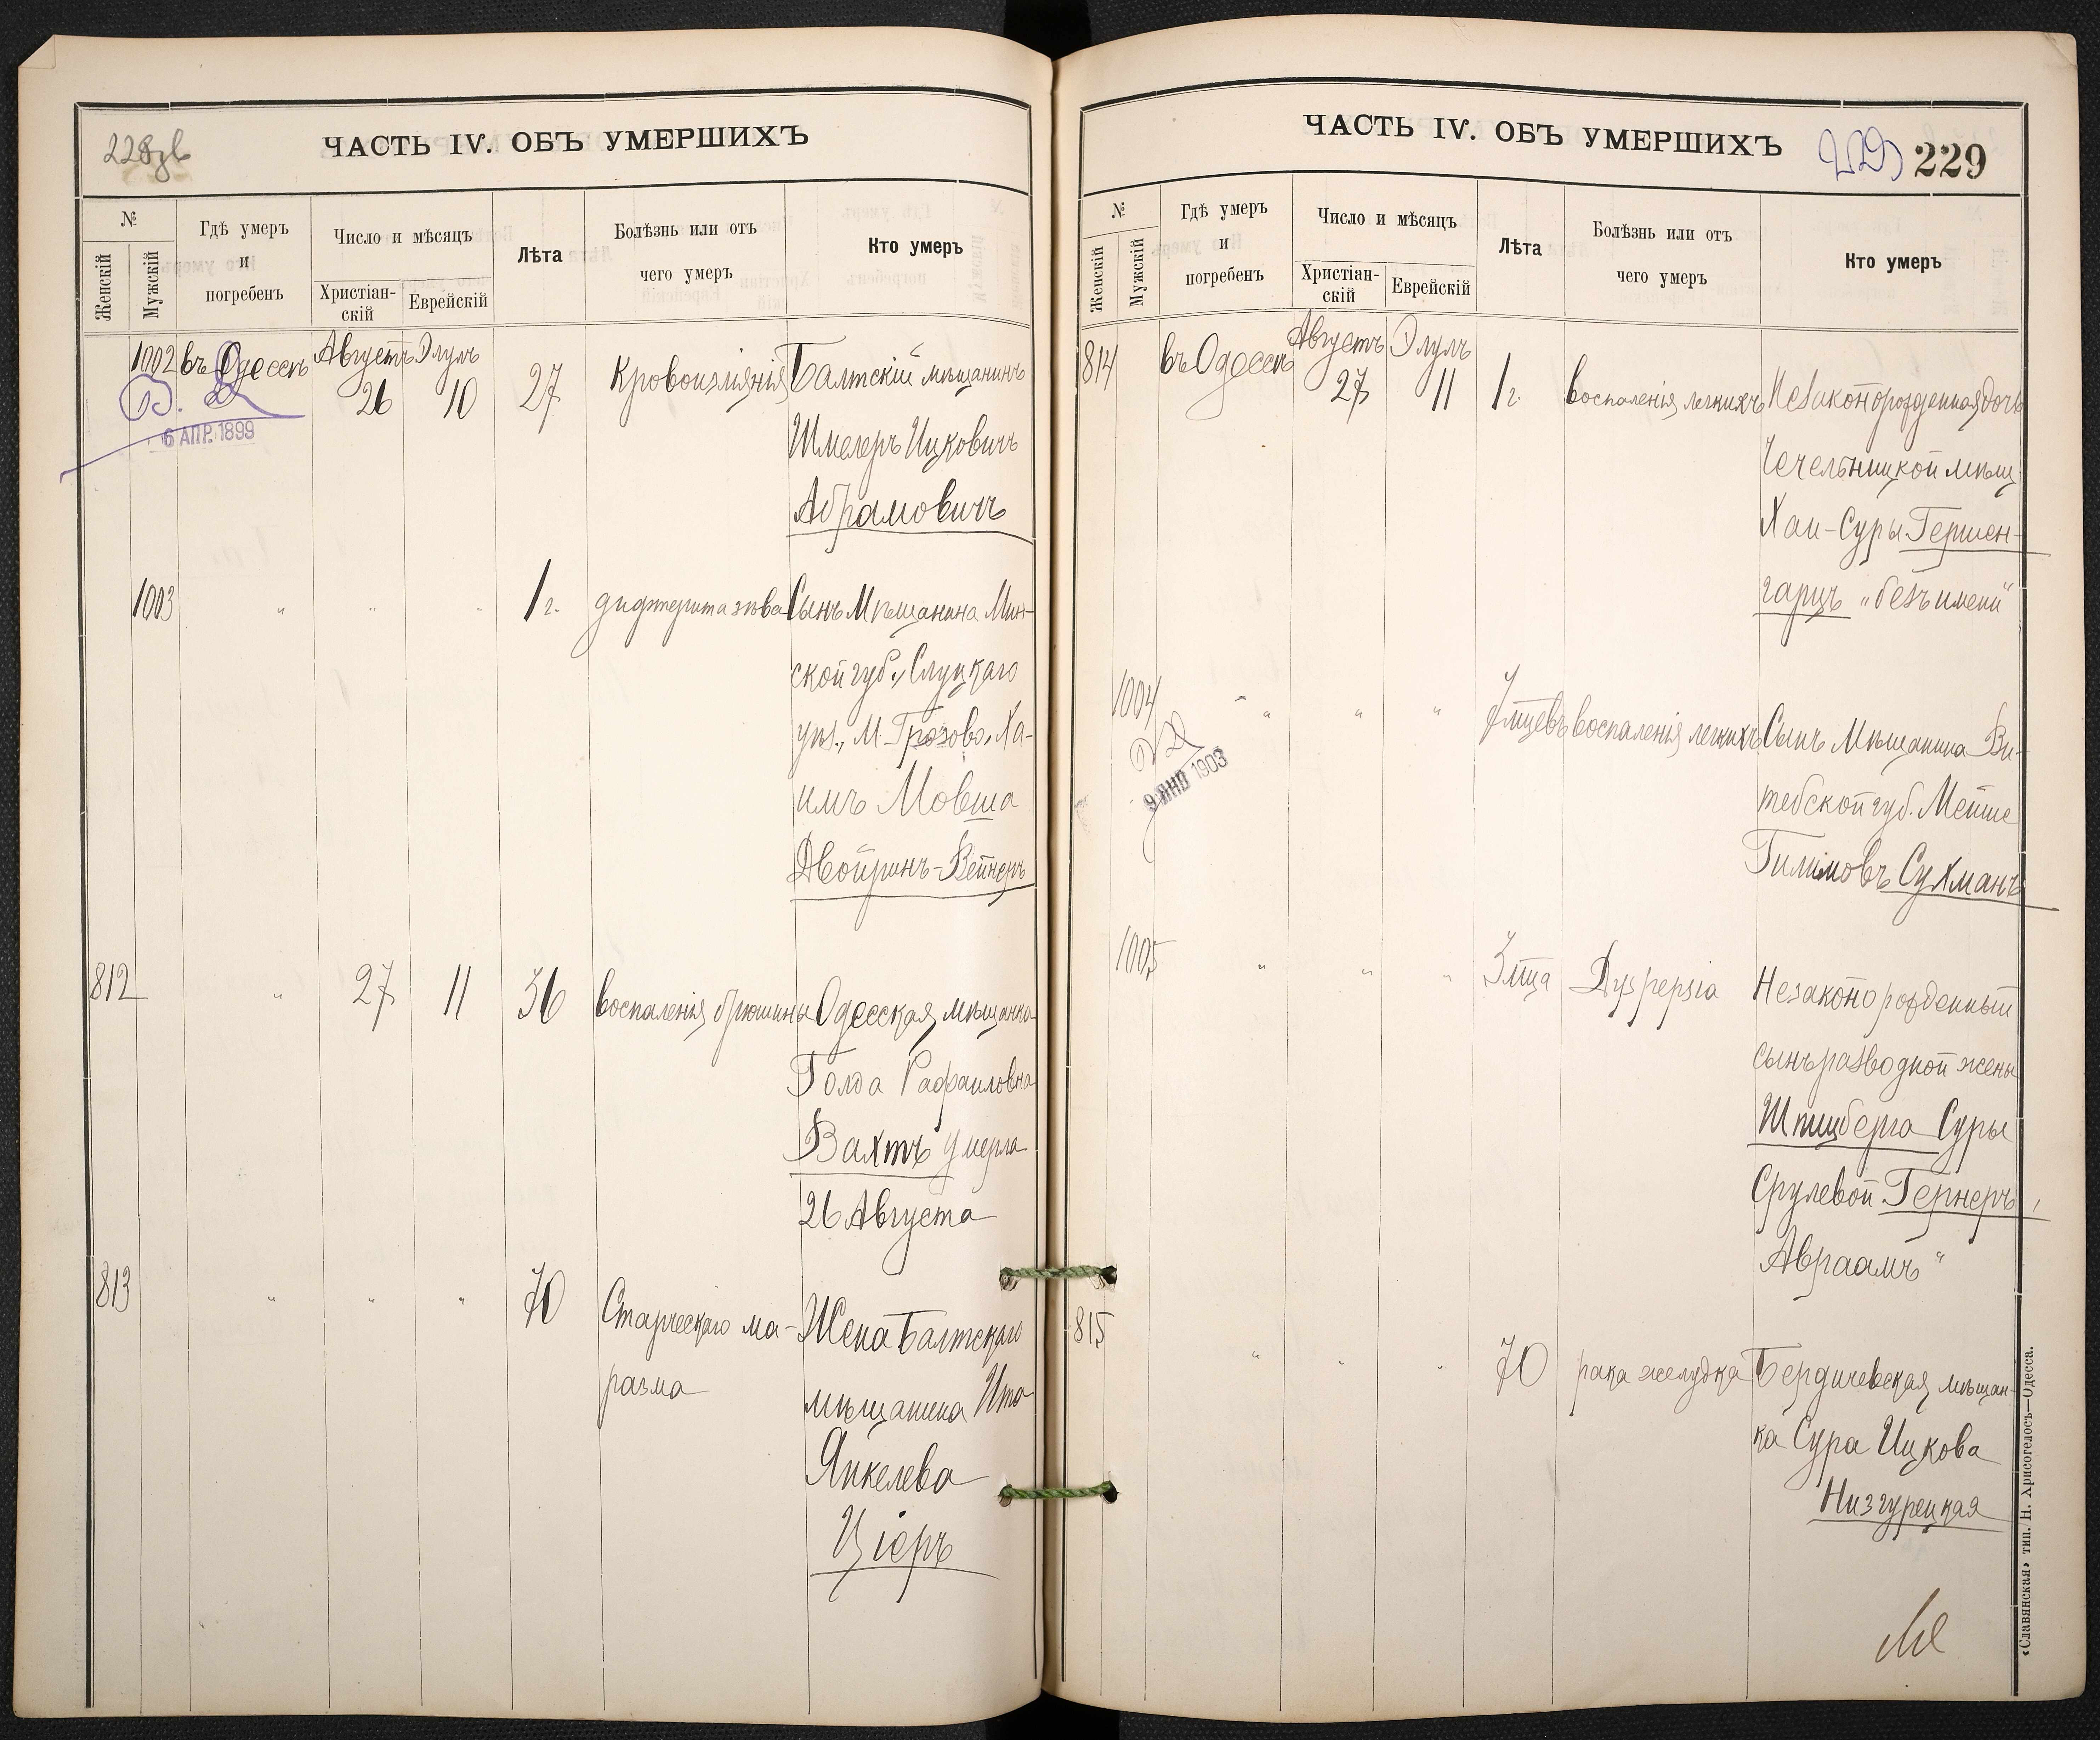 ЧАСТЬ IV. ОБЪ УМЕРШИХЪ
№
Женскій
Мужскій
Гдѣ умеръ
и
погребенъ
Число и мѣсяцъ
Христіан-
скій
Еврейскій
Лѣта
Болѣзнь или отъ
чего умеръ
Кто умеръ
1002 въ Одессѣ Августъ Элулъ
26 10 27 Кровоизліянія Балтскій мѣщанинъ
6 АПР. 1899
Шмелеръ Ицковичъ
Абрамовичъ
1003 " " " 1 г. дифтерита зѣва Сынъ Мѣщанина Мин-
ской губ., Слуцкаго
уѣз., М. Грозово, Ха-
имъ Мовша
Двойринъ-Вейнеръ
812 " 27 11 36 воспаленія брюшины Одесская мѣщанка
Голда Рафаиловна
Вахтъ умерла
26 Августа
813 " " " 70 Старческаго ма-
разма
Жена Балтскаго
мѣщанина Ита
Янкелева
Ціеръ
ЧАСТЬ IV. ОБЪ УМЕРШИХЪ 229 229
№
Женскій
Мужскій
Гдѣ умеръ
и
погребенъ
Число и мѣсяцъ
Христіан-
скій
Еврейскій
Лѣта
Болѣзнь или отъ
чего умеръ
Кто умеръ
814 въ Одессѣ Августъ Элулъ
27 11 1 г. воспаленія легкихъ Незаконорожденная дочь
Чечельницкой мѣщ.
Хаи-Суры Гершен-
гарцъ „безъ имени"
1004 " " " 7 мцевъ воспаленія легкихъ Сынъ Мѣщанина Ви-
9 ЯНВ 1903
тебской губ. Мейше
Гилимовъ Сухманъ
1005 " " " 3 мца Dyspepsia Незаконорожденный
сынъ разводной жены
Шпицберга Суры
Срулевой Гернеръ,
Авраамъ "
815 " " " 70 рака желудка Бердичевская мѣщан-
ка Сура Ицкова
Низгурецкая
«Славянская» тип. Н. Хрисогелосъ—Одесса.